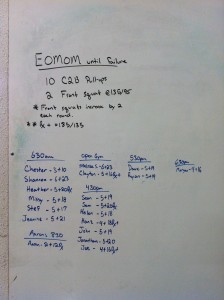 EOMOM until failure
10 C2B Pull-ups
2 Front Squat @135/95
* Front squats increase by 2
each round.
** Rx = @185/135
530am
Chester - 5+10
Shannon - 5+23
Heather - 5+20Rx
Missy - 5+18
Steff - 5+17
Jeanne - 5+21
Aarons 830
Anna - 8+12Rx
open Gym
Melissa - 5+23
Clayton - 5+12Rx
430pm
Sean - 5+19
Sam - 5+20Rx
5+18
Kent - 4+18Rx
John - 5+19
Jonathan - 5+20
Joe - 4+16Rx
530pm
Dave - 5+19
Ryan - 5+19
630pm
5+16